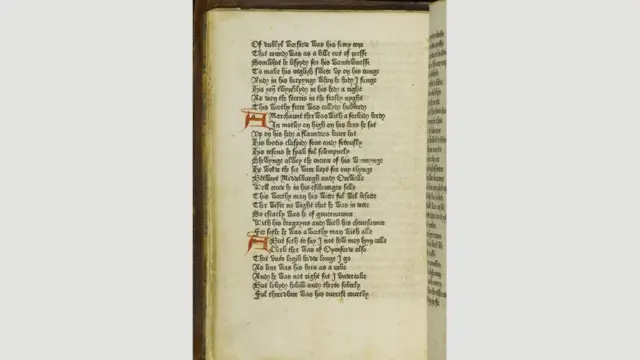 Of dubbyl worsted was his semy cope
That roundy was as a belle out of presse
Somwhat he lispyd for his wantownesse
To make his englissh swete vp on his tunge
Andy in his harpynge whan he hady songe
His yen twynkelyd in his hedy a right
As don the sterris in the frosty nyght
This worthy frere was callydy huberdy
A Marchaunt ther was with a forkidy berdy
In motley on high on his hors he sat
Vp on his hedy a flaundres beuer hat
His botis claspidy feir andy fetously
His resons he spak ful solempnely
Shewynge alwey the encres of his wynnynge
He wolde the see were kept for ony thynge
Betwyxt Middelburgh andy Orewelle
Well coude he in eschaunges selle
This worthy man his wit ful wel besette
Ther wiste no wight that he was in dette
So estatly was he of gouernaunce
With his bargayns andy with his cheuesaunce
For soth he was a worthy man with alle
But soth to say I not how men hym calle
A Clerk ther was of Oxenforde also
That vnto logik hadde longe I go
As lene was his hors as a rake
Andy he was not right fat I vndertake
But lokydy holow andy therto soberly
Ful thredbare was his ouerest courtepy